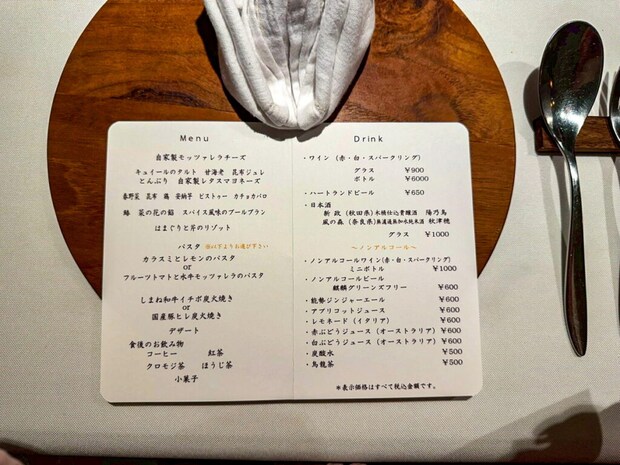 Menu
自家製モッツァレラチーズ
キュイールのタルト 甘海老 昆布ジュレ
とんぶり 自家製レタスマヨネーズ
春野菜 昆布 鶏 芽納芋 ピストゥー カチョカバロ
鰆 菜の花の餡 スパイス風味のブールブラン
はまぐりと芹のリゾット
パスタ ※以下よりお選び下さい
カラスミとレモンのパスタ
or
フルーツトマトと水牛モッツァレラのパスタ
しまね和牛イチボ炭火焼き
or
国産豚ヒレ炭火焼き
デザート
食後のお飲み物
コーヒー 紅茶
クロモジ茶 ほうじ茶
小菓子
Drink
・ワイン (赤・白・スパークリング)
グラス ¥900
ボトル ¥6000
・ハートランドビール ¥650
・日本酒
新政 (秋田県)木桶仕込貴醸酒 陽乃鳥
風の森 (奈良県)無濾過無加水純米酒 秋津穂
グラス ¥1000
～ノンアルコール～
・ノンアルコールワイン(赤・白・スパークリング)
ミニボトル ¥1000
・ノンアルコールビール
麒麟グリーンズフリー ¥600
・能勢ジンジャーエール ¥600
・アプリコットジュース ¥600
・レモネード (イタリア) ¥600
・赤ぶどうジュース (オーストラリア) ¥600
・白ぶどうジュース (オーストラリア) ¥600
・炭酸水 ¥500
・烏龍茶 ¥500
＊表示価格はすべて税込金額です。